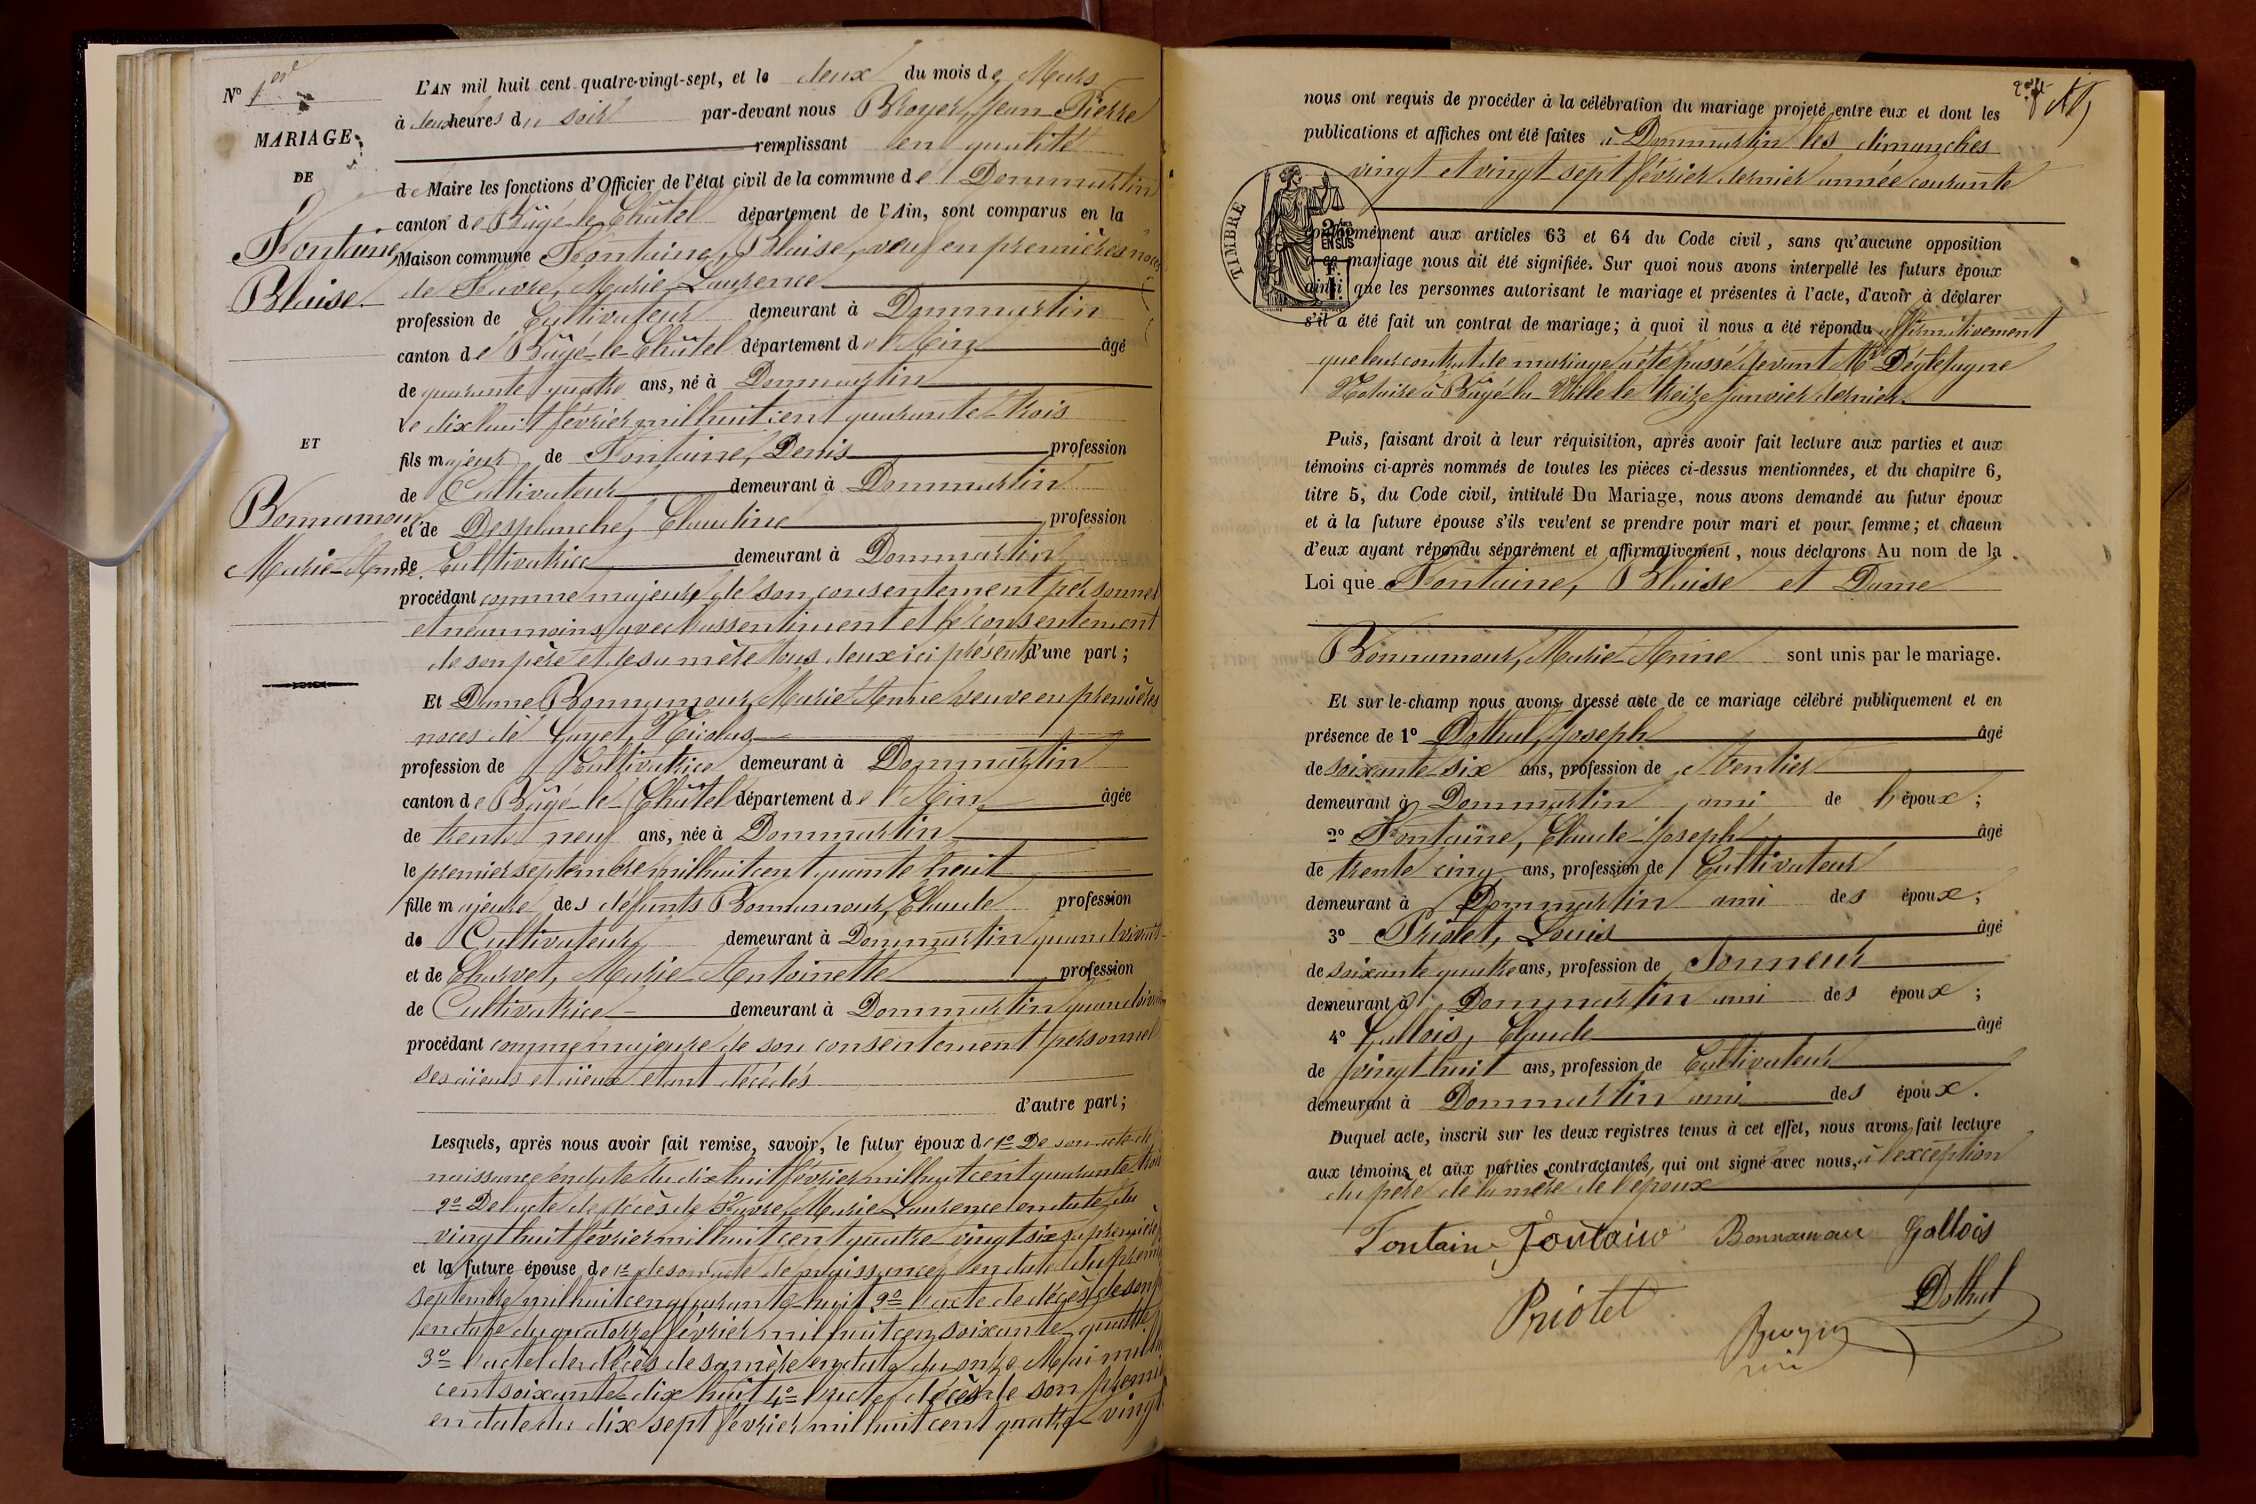 N° 1er
MARIAGE
DE
Fontaine,
Blaise
ET
Bonnamour,
Marie-Anne.
L'AN mil huit cent quatre-vingt-sept, et le deux du mois de Mars
à deux heures du soir par-devant nous Broyer, Jean-Pierre
remplissant en qualité
de Maire les fonctions d'Officier de l'état civil de la commune de Dommartin
canton de Bâgé-le-Châtel département de l'Ain, sont comparus en la
Maison commune Fontaine, Blaise, veuf en premières noces
de Favre, Marie-Laurence
profession de Cultivateur demeurant à Dommartin
canton de Bâgé-le-Châtel département de l'Ain âgé
de quarante quatre ans, né à Dommartin
le dix huit février mil huit cent quarante-trois
fils majeur de Fontaine, Denis profession
de Cultivateur demeurant à Dommartin
et de Desplanche, Claudine profession
de Cultivatrice demeurant à Dommartin
procédant comme majeur de son consentement personnel
et néanmoins avec l'assentiment et le consentement
de son père et de sa mère tous deux ici présents d'une part ;
Et Dame Bonnamour, Marie-Anne veuve en premières
noces de Guyet, Nicolas
profession de Cultivatrice demeurant à Dommartin
canton de Bâgé-le-Châtel département de l'Ain âgée
de trente neuf ans, née à Dommartin
le premier septembre mil huit cent quarante huit
fille majeure des défunts Bonnamour, Claude profession
de Cultivateur demeurant à Dommartin quand vivait
et de Charvet, Marie-Antoinette profession
de Cultivatrice demeurant à Dommartin quand vivait
procédant comme majeure de son consentement personnel
ses aïeuls et aïeux étant décédés
d'autre part ;
Lesquels, après nous avoir fait remise, savoir, le futur époux de 1° De son acte de
naissance en date du dix huit février mil huit cent quarante trois
2° De l'acte de décès de Favre, Marie-Laurence en date du
vingt huit février mil huit cent quatre-vingt six sa première
et la future épouse de 1° de son acte de naissance en date du premier
septembre mil huit cent quarante-huit 2° l'acte de décès de son
en date du quatorze février mil huit cent soixante-quatre
3° l'acte de décès de sa mère en date du onze Mai mil
cent soixante-dix huit 4° l'acte de décès de son premier
en date du dix sept février mil huit cent quatre-vingt
nous ont requis de procéder à la célébration du mariage projeté entre eux et dont les
publications et affiches ont été faites à Dommartin les dimanches
vingt et vingt sept février dernier année courante
TIMBRE
2/10mes
EN SUS
conformément aux articles 63 et 64 du Code civil, sans qu'aucune opposition
à ce mariage nous ait été signifiée. Sur quoi nous avons interpellé les futurs époux
ainsi que les personnes autorisant le mariage et présentes à l'acte, d'avoir à déclarer
s'il a été fait un contrat de mariage ; à quoi il nous a été répondu affirmativement
que leur contrat de mariage a été passé devant Me Déglefagne
Notaire à Bâgé-la-Ville le treize janvier dernier.
Puis, faisant droit à leur réquisition, après avoir fait lecture aux parties et aux
témoins ci-après nommés de toutes les pièces ci-dessus mentionnées, et du chapitre 6,
titre 5, du Code civil, intitulé Du Mariage, nous avons demandé au futur époux
et à la future épouse s'ils veulent se prendre pour mari et pour femme ; et chacun
d'eux ayant répondu séparément et affirmativement, nous déclarons Au nom de la
Loi que Fontaine, Blaise et Dame
Bonnamour, Marie-Anne sont unis par le mariage.
Et sur-le-champ nous avons dressé acte de ce mariage célébré publiquement et en
présence de 1° Dothal, Joseph âgé
de soixante-six ans, profession de Rentier
demeurant à Dommartin ami de l'époux ;
2° Fontaine, Claude-Joseph âgé
de trente cinq ans, profession de Cultivateur
demeurant à Dommartin ami des époux ;
3° Priolet, Louis âgé
de soixante quatre ans, profession de Sonneur
demeurant à Dommartin ami des époux ;
4° Gallois, Claude âgé
de vingt huit ans, profession de Cultivateur
demeurant à Dommartin ami des époux.
Duquel acte, inscrit sur les deux registres tenus à cet effet, nous avons fait lecture
aux témoins et aux parties contractantes, qui ont signé avec nous, à l'exception
du père de la mère de l'époux
Fontaine Fontaine Bonnamour Gallois
Priolet Dothal
Broyer